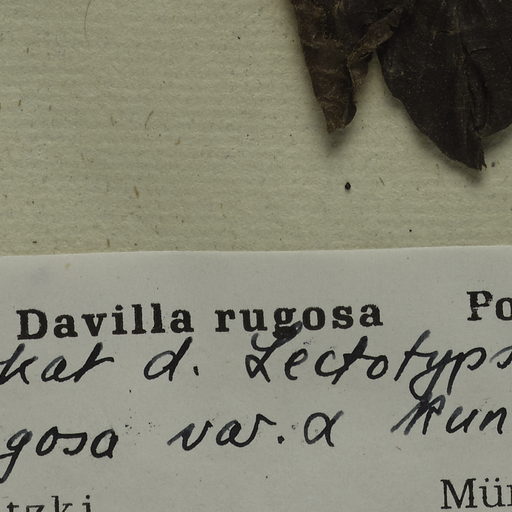 Davilla rugosa Po
kat d. Lectotyps
gosa var. α Kun
tzki Mün